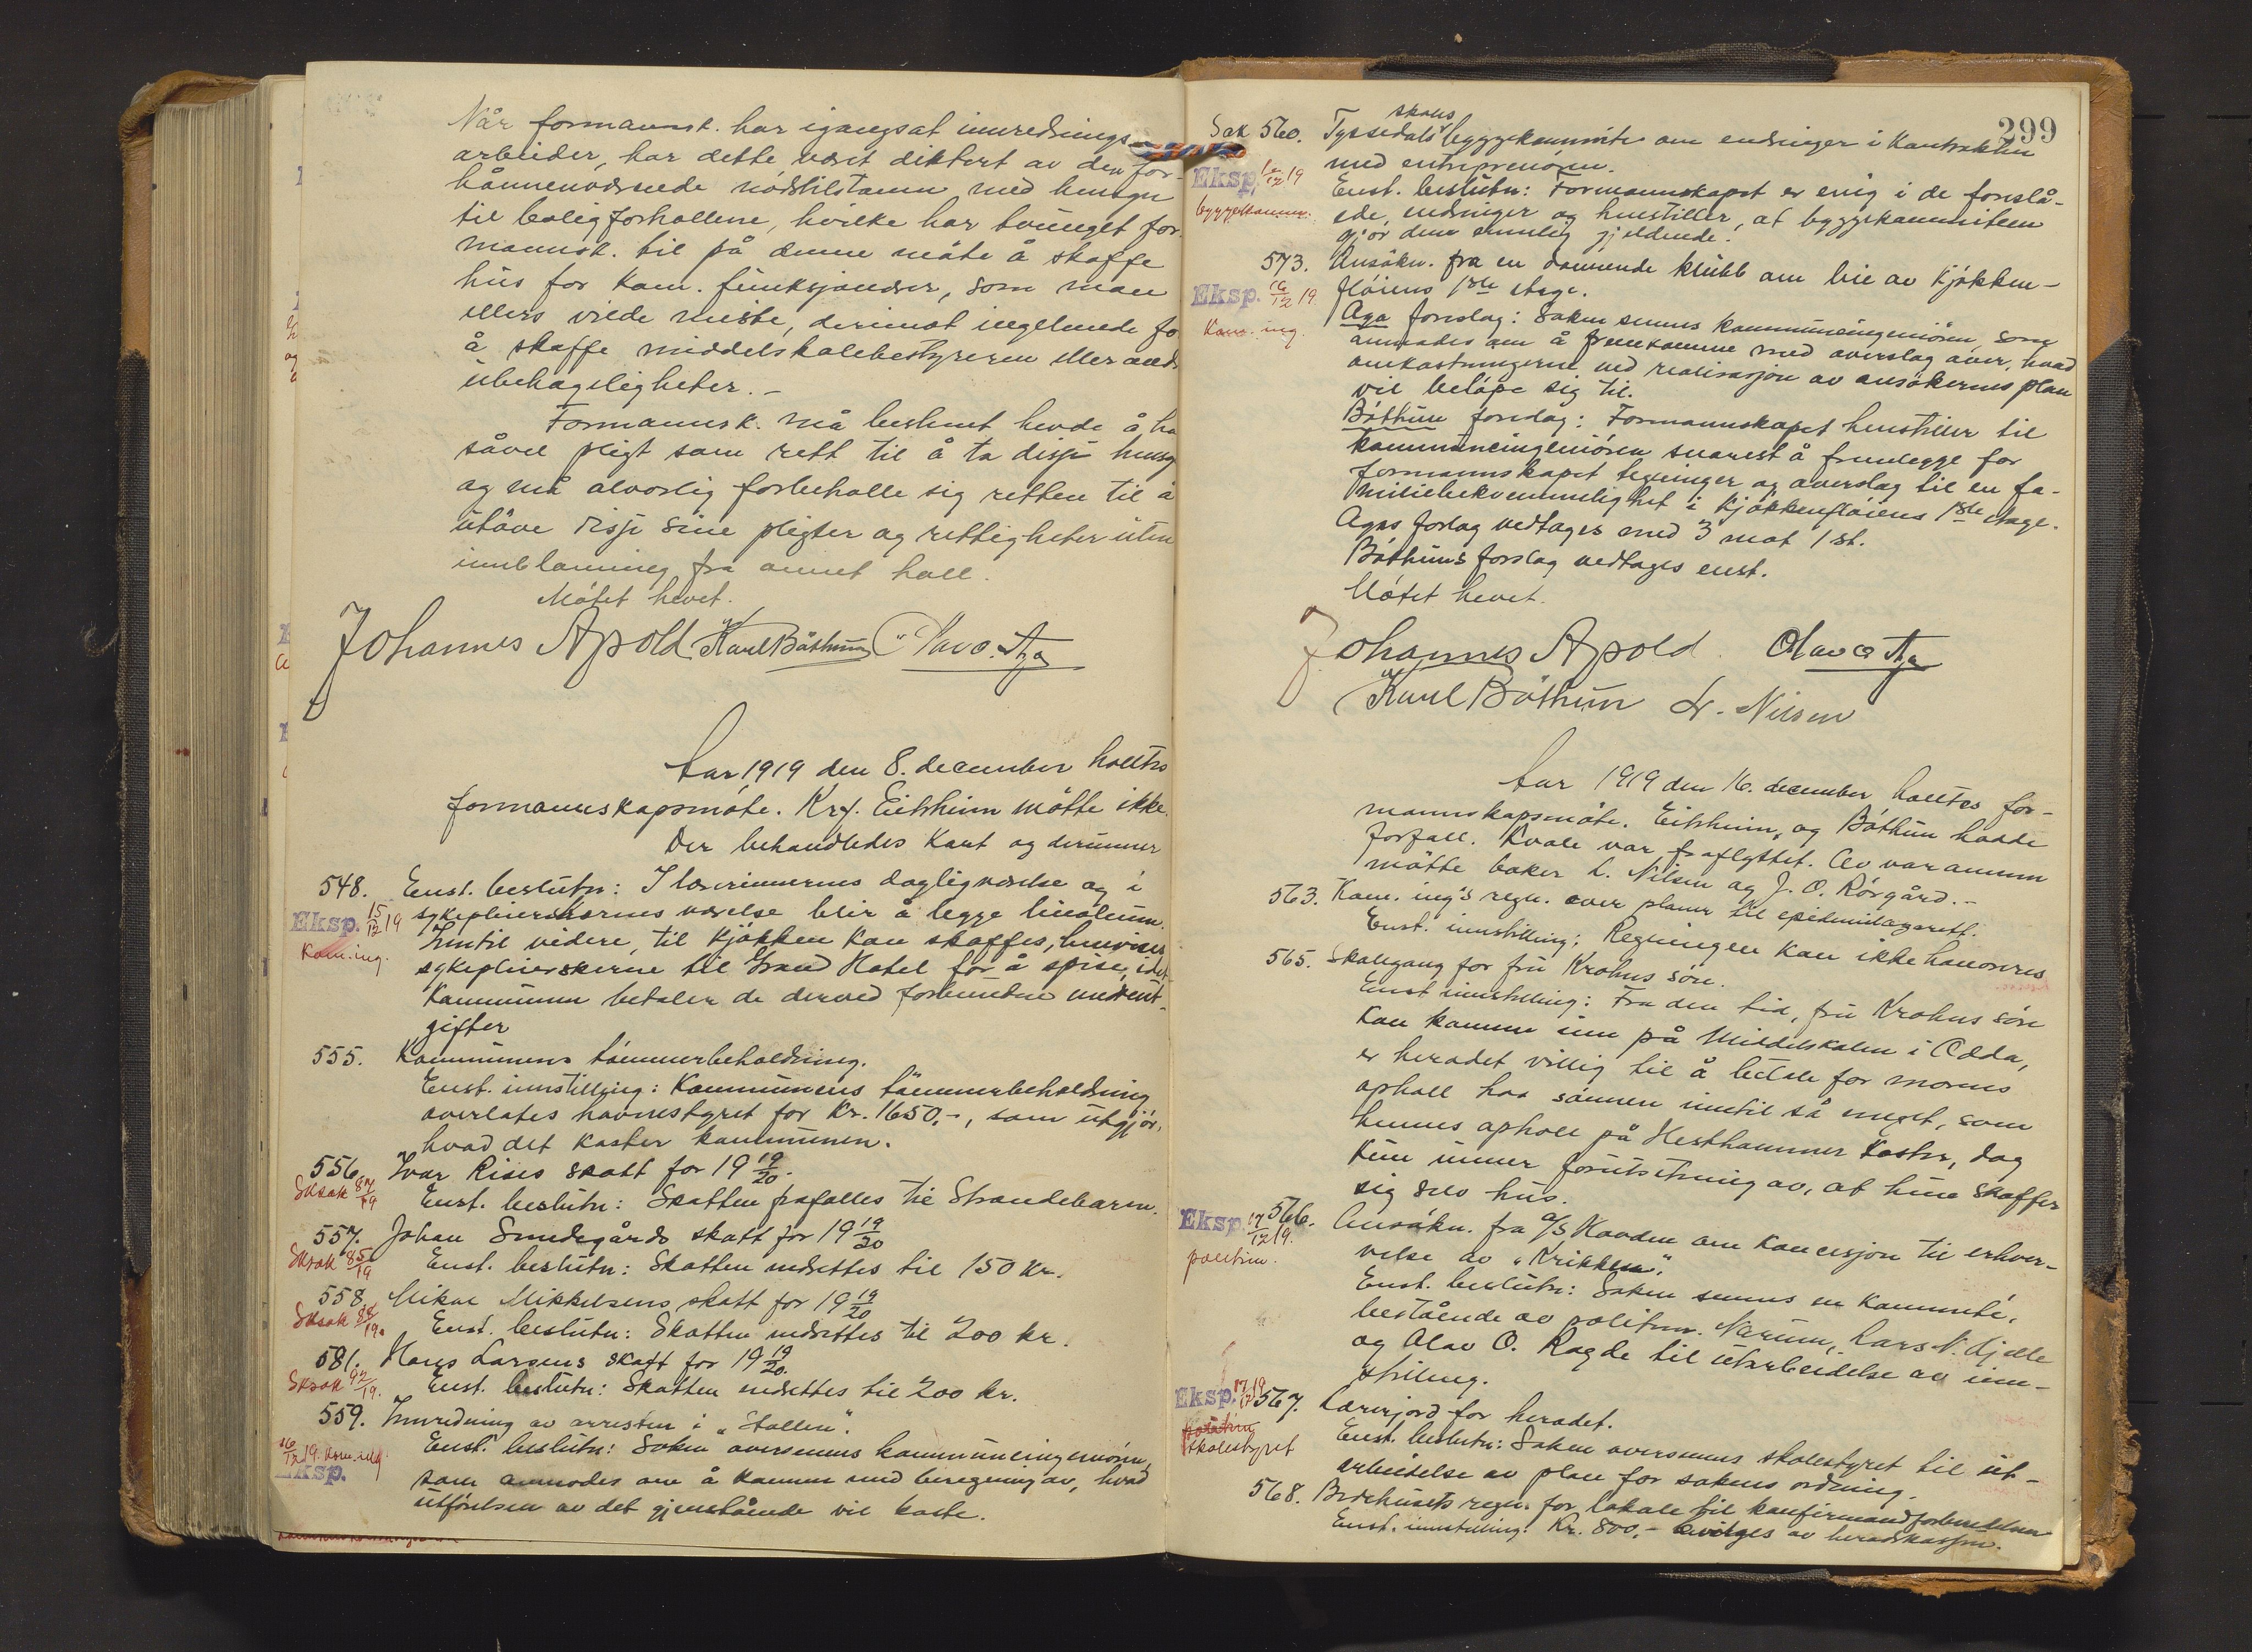 Når formannsk. har igangsat innrednings-
arbeider, har dette været diktert av den for-
håndenværende nödstilstann med hensyn
til boligforhollene, hvilke har tvunget for-
mannsk. til på denne måte å skaffe
hus for kom. funksjonærer, som man
ellers vilde miste, derimot ingelunde fo
å skaffe middelskolebestyreren eller andr
ubehageligheter. –
Formannsk. må bestemt hevde å ha
såvel pligt som rett til å ta disse hensy
og må alvorlig forbeholle sig retten til å
utöve disse sine pligter og rettigheter uten
innblanning fra annet holl.
Mötet hevet.
Johannes Apold Karl Böthun Olav O. Aga
Aar 1919 den 8. december holltes
formannskapsmöte. Krf. Eitrheim mötte ikke.
Der behandledes kart og derunner
548. Enst. beslutn: I lærerinnernes dagligværelse og i
Eksp. 15/12 19 sykepleierskernes værelse blir å legge linoleum.
Kom.ing. Inntil videre, til kjökken kan skaffes, henvises
sykepleierskerne til Grand Hotel for å spise, idet
kommunen betaler de derved forbundne merut-
gifter
555. Kommunens tömmerbeholdning.
Enst. innstilling: Kommunens tömmerbeholdning
overlates havnestyret for kr. 1650,-, som utgjör,
hvad det koster kommunen.
556. Ivar Rises skatt for 19 19/20.
Sksak 87/19 Enst. beslutn: Skatten frafalles til Strandebarm.
557. Johan Smedegårds skatt for 19 19/20
Sksak 85/19 Enst. beslutn: Skatten nedsettes til 150 kr.
558. Mikal Mikkelsens skatt for 19 19/20
Sksak 88/19. Enst. beslutn: Skatten nedsettes til 200 kr.
581. Hans Larsens skatt for 19 19/20.
Sksak 92/19. Enst. beslutn: Skatten nedsettes til 200 kr.
559. Innredning av arresten i "Stallen".
16/12 19. Kom.ing. Enst. beslutn: Saken oversennes kommuneingeniören,
Eksp. som anmodes om å komme med beregning av, hvad
utförelsen av det gjenstående vil koste.
299
Sak 560. Tyssedals skoles byggekommite om endringer i kontrakten
Eksp. 16/12 19 med entreprenören.
byggekomm. Enst. beslutn: Formannskapet er enig i de foreslå-
ede endringer og henstiller, at byggekommiteen
gjör dem ennlig gjeldende.
573. Ansökn. fra en dannende klubb om leie av kjökken-
Eksp. 16/12 19. flöiens 1ste etage.
Kom.ing. Aga foreslog: Saken sennes kommuneingeniören, som
anmodes om å fremkomme med overslag over, hvad
omkostningerne ved realisasjon av ansökernes plan
vil belöpe sig til.
Böthun foreslog: Formannskapet henstiller til
kommuneingeniören snarest å fremlegge for
formannskapet tegninger og overslag til en fa-
miliebekvemmelighet i kjökkenflöiens 1ste etage.
Agas forslag vedtages med 3 mot 1 st.
Böthuns forslag vedtages enst.
Mötet hevet.
Johannes Apold. Olav O. Aga
Karl Böthun L. Nilsen
Aar 1919 den 16. december holltes for-
mannskapsmöte. Eitrheim, og Böthun hadde
forfall. Kvale var fraflyttet. Av varamenn
mötte baker L. Nilsen og J. O. Rörgård. –
563. Kom. ing's regn. over planer til epidemilasarett.
Enst. innstilling: Regningen kan ikke honoreres
565. Skolegang for fru Krohns sön.
Enst innstilling: Fra den tid, fru Krohns sön
kan komme inn på Middelskolen i Odda,
er heradet villig til å betale for morens
opholl hos sönnen inntil så meget, som
hennes opholl på Hesthammer koster, dog
kun unner forutsetning av, at hun skaffer
sig selv hus.
Eksp. 17/12 19. 566. Ansökn. fra A/S Havden om koncesjon til erhver-
politim. velse av "Krikken".
Enst. beslutn: Saken sennes en kommité,
bestående av politim. Nærum, Lars N. Hjelle
og Olav O. Ragde til utarbeidelse av inn-
stilling.
Eksp. 17/12 19 567. Lærerjord for heradet.
skolestyret Enst. beslutn: Saken oversennes skolestyret til ut-
arbeidelse av plan for sakens ordning.
568. Bedehusets regn. for lokale til konfirmandforberedelsen
Enst. innstilling: Kr. 800,- bevilges av heradskassen.